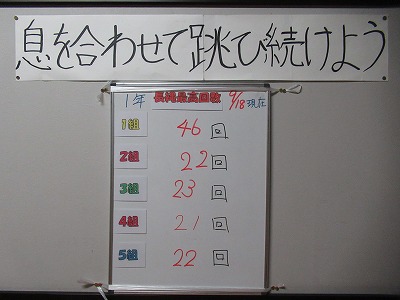 息を合わせて跳び続けよう
1年 長縄最高回数 9/18現在
1組 46回
2組 22回
3組 23回
4組 21回
5組 22回